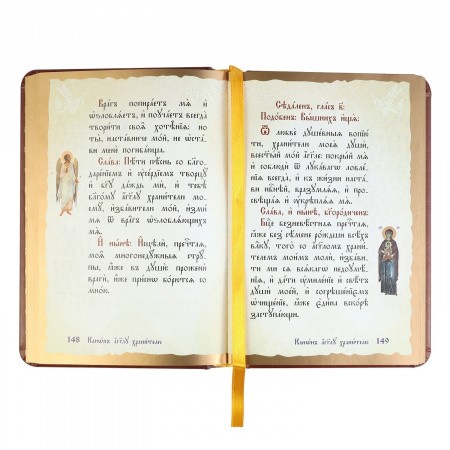 Врагъ попираетъ мѧ̀ и҆
ѡ҆ѕлоблѧетъ, и҆ поучаетъ всегда
твори́ти своѧ̑ хотѣ́нїѧ: но
ты̀, наста́вниче мо́й, не ѡ҆ста́-
ви менѐ погиба́юща.
Сла́ва: Пѣ́ти пѣ́снь со бл҃го-
даре́нїемъ и҆ ᲂу҆се́рдїемъ творцꙋ̀
и҆ бг҃ꙋ да́ждь мѝ, и҆ тебѣ̀
бл҃го́мꙋ а҆́гг҃лꙋ храни́телю мо-
емꙋ̀, и҆зба́вителю мо́й, и҆змѝ
мѧ̀ ѿ вра̑гъ ѡ҆ѕлоблѧ́ющихъ
мѧ̀.
И҆ ны́нѣ: И҆сцѣлѝ, пречⷭ҇таѧ,
моѧ̑ многонедꙋ́жныѧ стрꙋ́-
пы, ꙗ҆̀же въ дꙋшѝ: проженѝ
врагѝ, и҆̀же при́снѡ бо́рютсѧ со
мно́ю.
148 Канѡ́нъ а҆́гг҃лꙋ храни́телю
Сѣда́ленъ, гла́съ в҃:
Подо́бенъ: Вы́шнихъ и҆щѧ̀:
Ѿ любвѐ дꙋше́вныѧ вопїю́
ти, храни́телю моеѧ̀ дꙋшѝ,
всест҃ы́й мо́й а҆́гг҃ле: покры́й мѧ̀
и҆ соблюдѝ ѿ лꙋка́вагѡ ловле́-
нїѧ всегда̀, и҆ къ жи́зни наста́-
ви нбⷭ҇нѣй, вразꙋмлѧ́ѧ и҆ про-
свѣща́ѧ и҆ ᲂу҆крѣплѧ́ѧ мѧ̀.
Сла́ва, и҆ ны́нѣ, бг҃оро́диченъ:
Бцⷣе безневѣ́стнаѧ пречⷭ҇таѧ,
ꙗ҆́же без̾ сѣ́мене ро́ждши всѣ́хъ
вл҃кꙋ, того̀ со а҆́гг҃ломъ храни́-
телемъ мои́мъ молѝ, и҆зба́ви-
ти мѧ̀ всѧ́кагѡ недоꙋмѣ́-
нїѧ, и҆ да́ти ᲂу҆миле́нїе и҆ свѣ́тъ
дꙋшѝ мое́й, и҆ согрѣше́нїємъ
ѡ҆чище́нїе, ꙗ҆́же є҆ди́на вско́рѣ
застꙋпа́ющи.
Канѡ́нъ а҆́гг҃лꙋ храни́телю 149